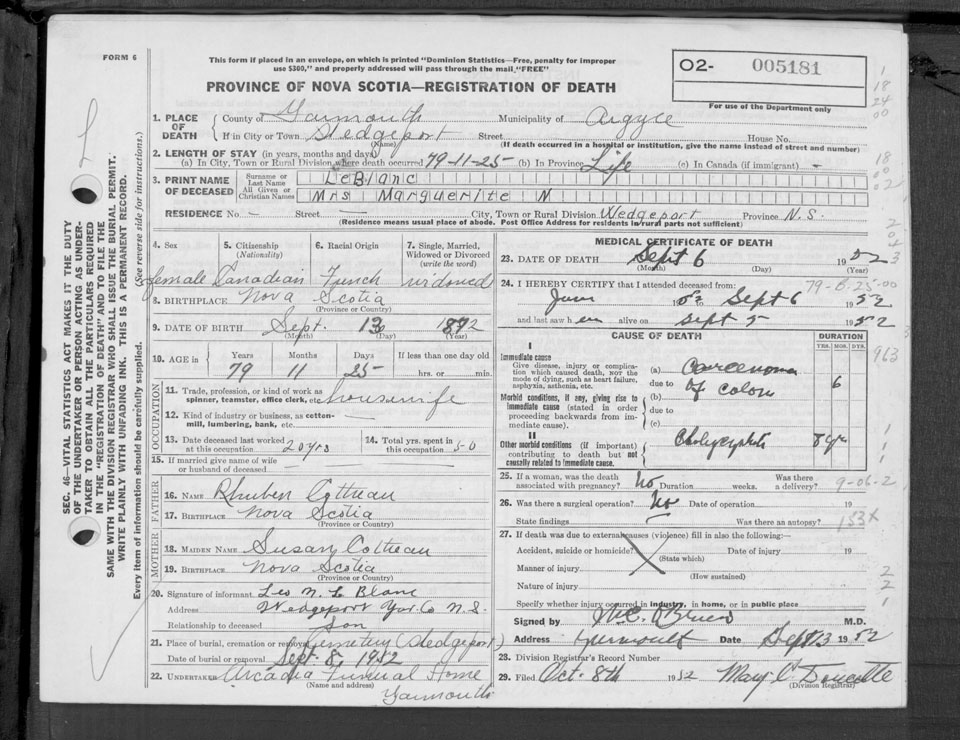 FORM 6
This form if placed in an envelope, on which is printed "Dominion Statistics—Free, penalty for improper
use $300," and properly addressed will pass through the mail "FREE"
PROVINCE OF NOVA SCOTIA—REGISTRATION OF DEATH
O2- 005181
For use of the Department only
1. PLACE OF DEATH
County of Yarmouth Municipality of Argyle
If in City or Town Wedgeport Street House No.
(Name) (If death occurred in a hospital or institution, give the name instead of street and number)
2. LENGTH OF STAY (in years, months and days)
(a) In City, Town or Rural Division where death occurred 79-11-25 (b) In Province Life (c) In Canada (if immigrant) -
3. PRINT NAME OF DECEASED
Surname or Last Name LeBlanc
All Given or Christian Names Mrs Marguerite M
RESIDENCE No. — Street — City, Town or Rural Division Wedgeport Province N.S.
(Residence means usual place of abode. Post Office Address for residents in rural parts not sufficient)
4. Sex 5. Citizenship (Nationality) 6. Racial Origin 7. Single, Married, Widowed or Divorced (write the word)
female Canadian French widowed
8. BIRTHPLACE Nova Scotia
(Province or Country)
9. DATE OF BIRTH Sept. 13 1872
(Month) (Day) (Year)
10. AGE in Years Months Days If less than one day old
79 11 25 hrs. or min.
OCCUPATION
11. Trade, profession, or kind of work as spinner, teamster, office clerk, etc. housewife
12. Kind of industry or business, as cotten-mill, lumbering, bank, etc. —
13. Date deceased last worked at this occupation 20 yrs 14. Total yrs. spent in this occupation 50
15. If married give name of wife or husband of deceased
FATHER
16. NAME Rhuben Cottreau
17. BIRTHPLACE Nova Scotia
(Province or Country)
MOTHER
18. MAIDEN NAME Susan Cottreau
19. BIRTHPLACE Nova Scotia
(Province or Country)
20. Signature of informant Leo M. Le Blanc
Address Wedgeport Yar. Co N.S.
Relationship to deceased son
21. Place of burial, cremation or removal Cemetery (Wedgeport)
Date of burial or removal Sept. 8, 1952
22. UNDERTAKER Arcadia Funeral Home
(Name and address) Yarmouth
MEDICAL CERTIFICATE OF DEATH
23. DATE OF DEATH Sept 6 1952
(Month) (Day) (Year)
79-B-25-00
24. I HEREBY CERTIFY that I attended deceased from:
June 1952 to Sept 6 1952
and last saw her alive on Sept 5 1952
CAUSE OF DEATH DURATION
YRS. MOS. DYS.
963
I
Immediate cause
Give disease, injury or complication which caused death, not the mode of dying, such as heart failure, asphyxia, asthenia, etc.
(a) Carcenoma
due to of colon 6
Morbid conditions, if any, giving rise to immediate cause (stated in order proceeding backwards from immediate cause).
(b)
due to
(c)
II
Other morbid conditions (if important) contributing to death but not causally related to immediate cause.
Cholecystitis 8 yr
25. If a woman, was the death associated with pregnancy? No Duration weeks. Was there a delivery?
9-06-2
26. Was there a surgical operation? No Date of operation 19
State findings Was there an autopsy?
153x
27. If death was due to external causes (violence) fill in also the following:—
Accident, suicide or homicide? Date of injury 19
(State which)
Manner of injury
(How sustained)
Nature of injury
Specify whether injury occurred in industry, in home, or in public place
Signed by O'Brien M.D.
Address Yarmouth Date Sept 13 1952
28. Division Registrar's Record Number
29. Filed Oct. 8th 1952 Mary C. Doucette
(Division Registrar)
SEC. 46—VITAL STATISTICS ACT MAKES IT THE DUTY
OF THE UNDERTAKER OR PERSON ACTING AS UNDER-
TAKER TO OBTAIN ALL THE PARTICULARS REQUIRED
IN THE "REGISTRATION OF DEATH" AND TO FILE THE
SAME WITH THE DIVISION REGISTRAR WHO SHALL ISSUE THE BURIAL PERMIT.
WRITE PLAINLY WITH UNFADING INK. THIS IS A PERMANENT RECORD.
Every item of information should be carefully supplied. (See reverse side for instructions.)